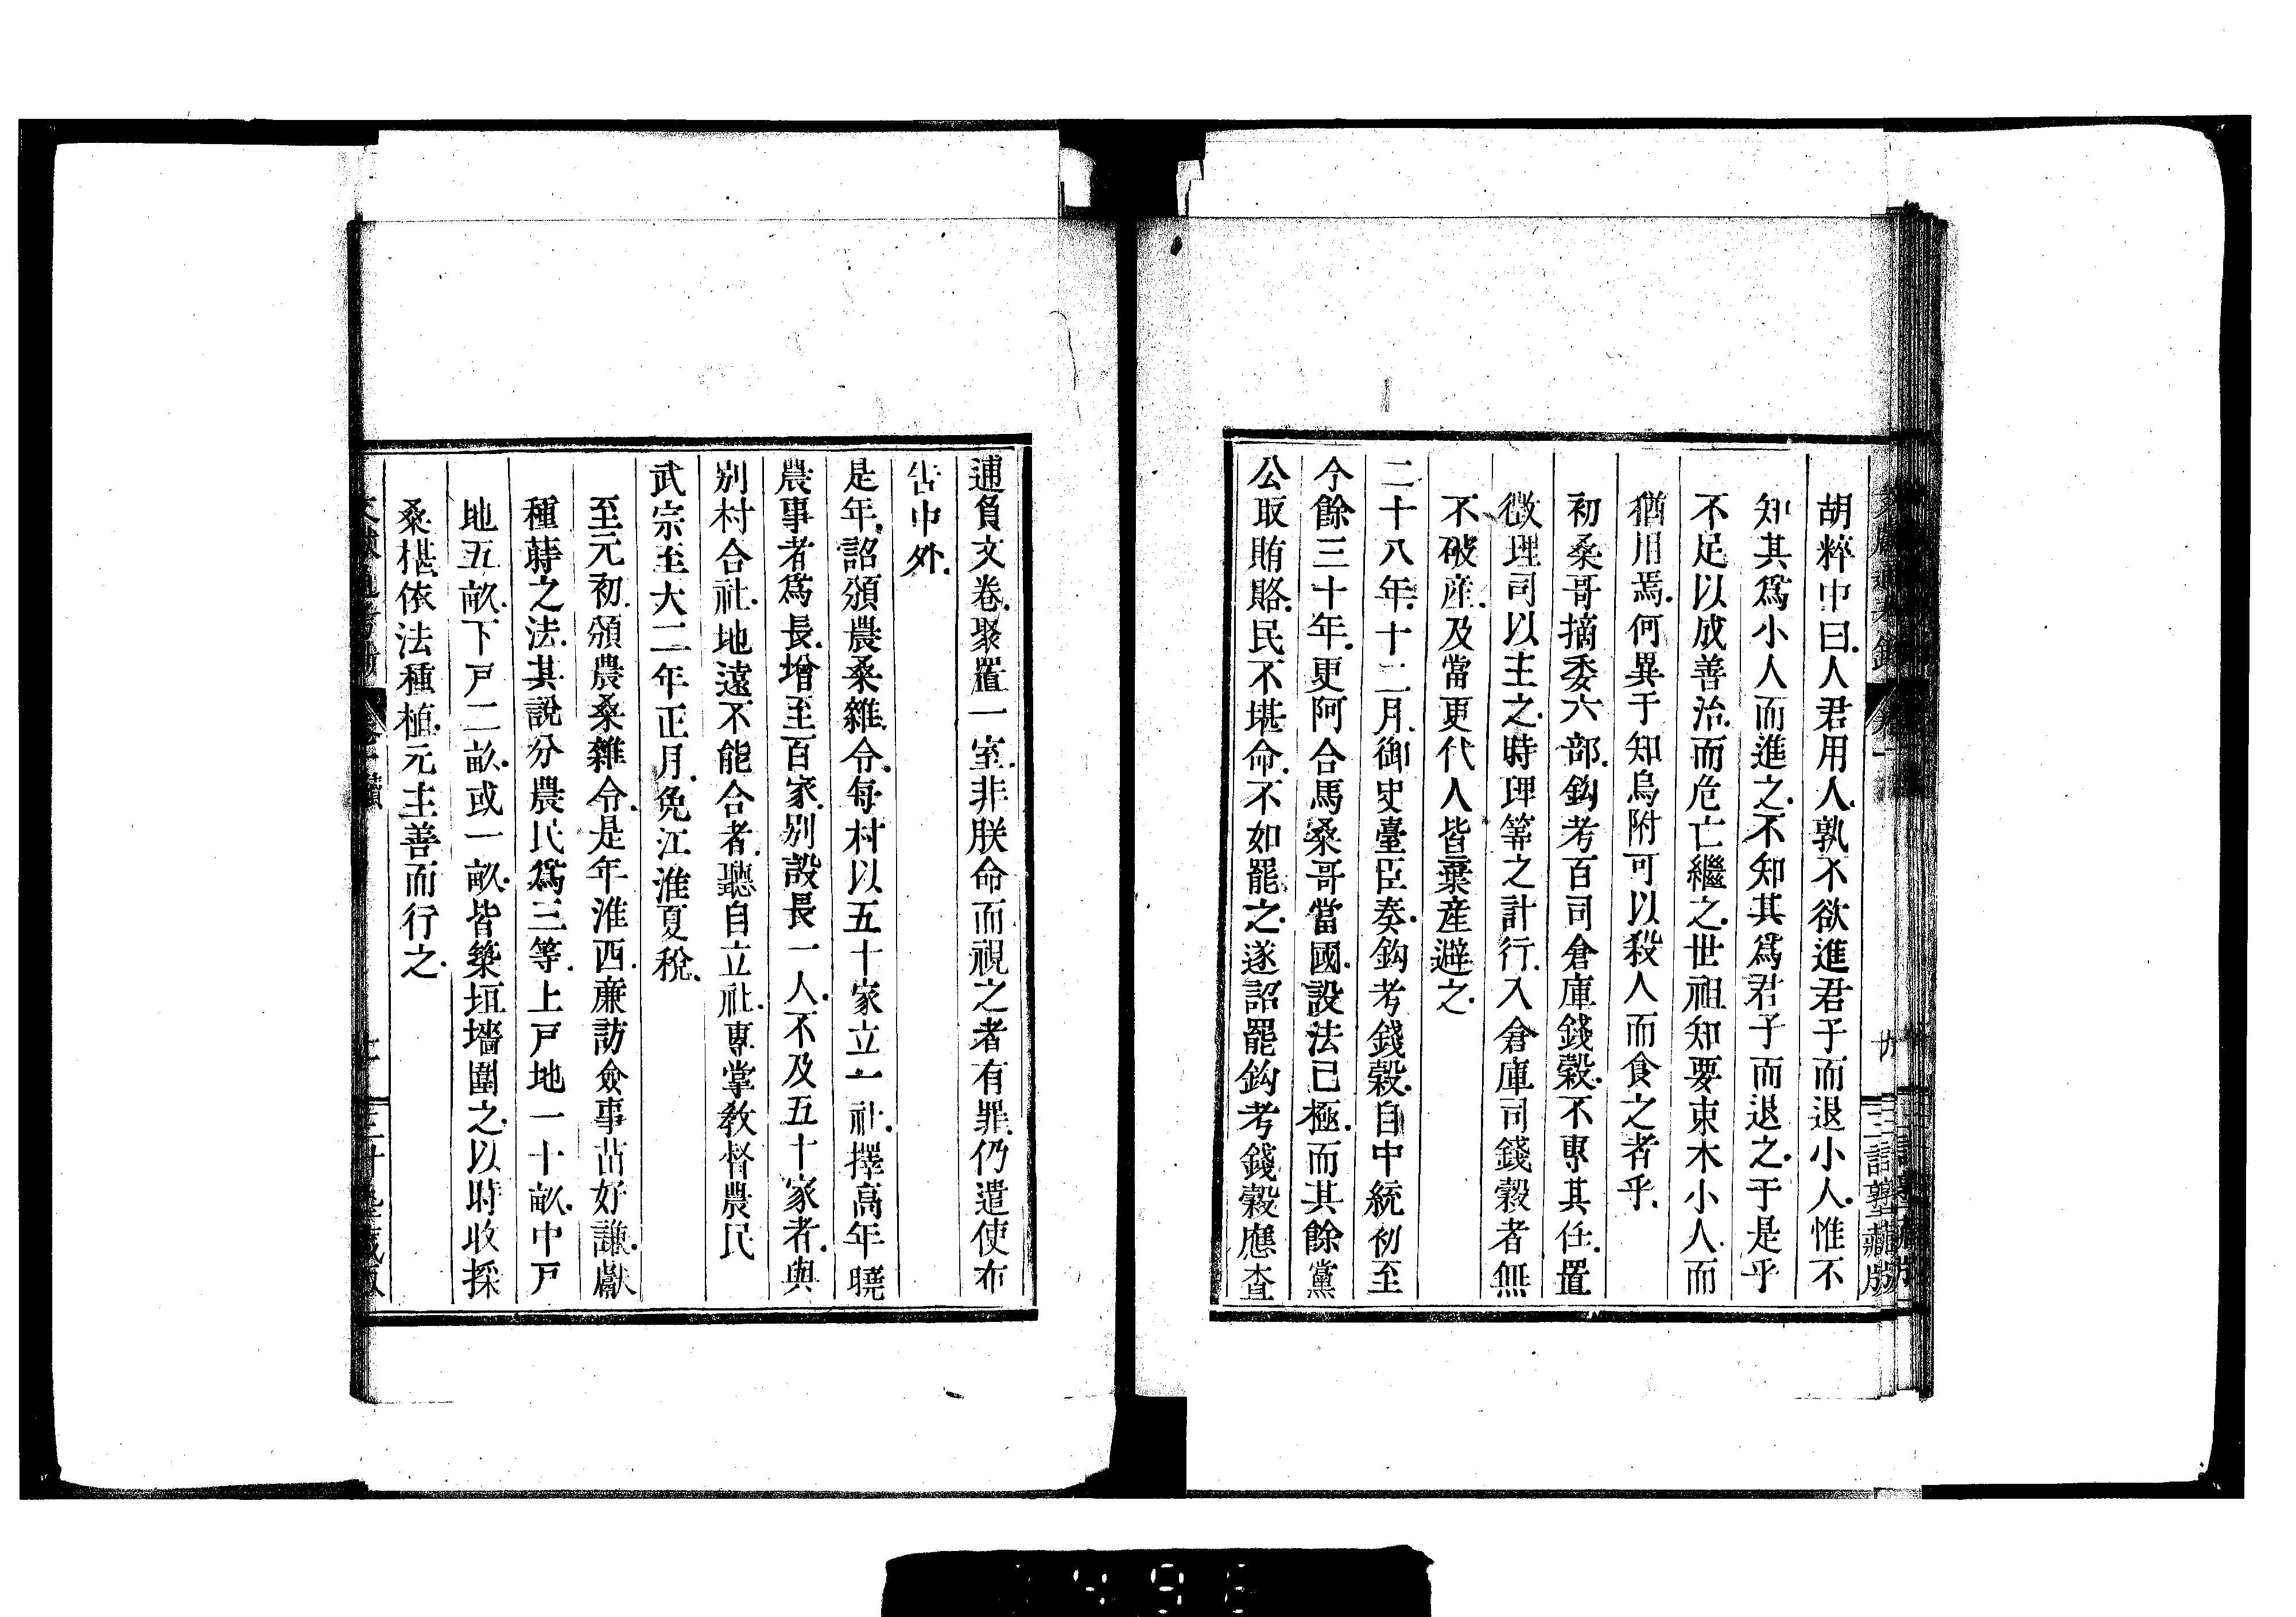 胡粹中曰人君用人孰不欲進君子而退小人惟不
知其爲小人而進之不知其爲君子而退之于是乎
不足以成善治而危亡繼之世祖知要束木小人而
猶用焉何異于知烏附可以殺人而食之者乎
初桑哥摘委六部鈎考百司倉庫錢穀不專其任置
徴理司以主之時理筭之計行入倉庫司錢穀者無
不破産及當更代人皆棄産避之
二十八年十二月御史臺臣奏鈎考錢穀自中統初至
今餘三十年更阿合馬桑哥當國設法已極而其餘黨
公取賄賂民不堪命不如罷之遂詔罷鈎考錢穀應查
逋負文卷聚置一室非朕命而視之者有罪仍遣使布
告中外
是年詔頒農桑雜令每村以五十家立一社擇高年曉
農事者爲長增至百家別設長一人不及五十家者與
別村合社地遠不能合者聽自立社專掌教督農民
武宗至大二年正月免江淮夏稅
至元初頒農桑雜令是年淮西廉訪僉事苗好謙獻
種蒔之法其說分農民爲三等上戸地一十畝中戸
地五畝下戸二畝或一畝皆築垣墻圍之以時收採
桑椹依法種植元主善而行之